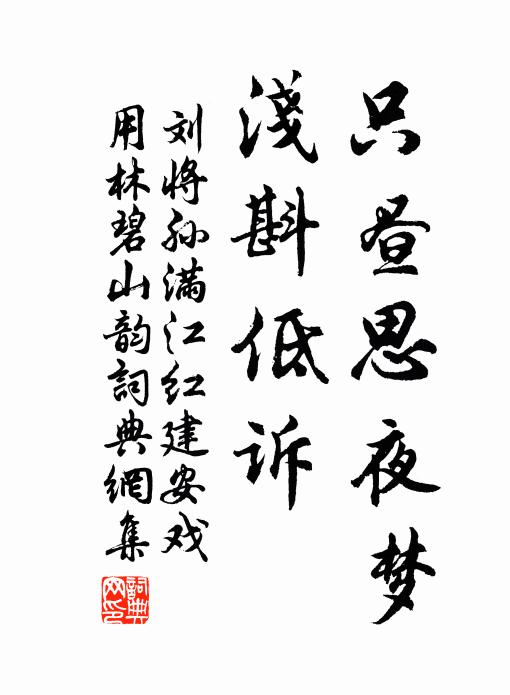 只昼思夜梦
淺斟低诉
刘将孙满江红建安戏
用林碧山韵詞典網集
詞典